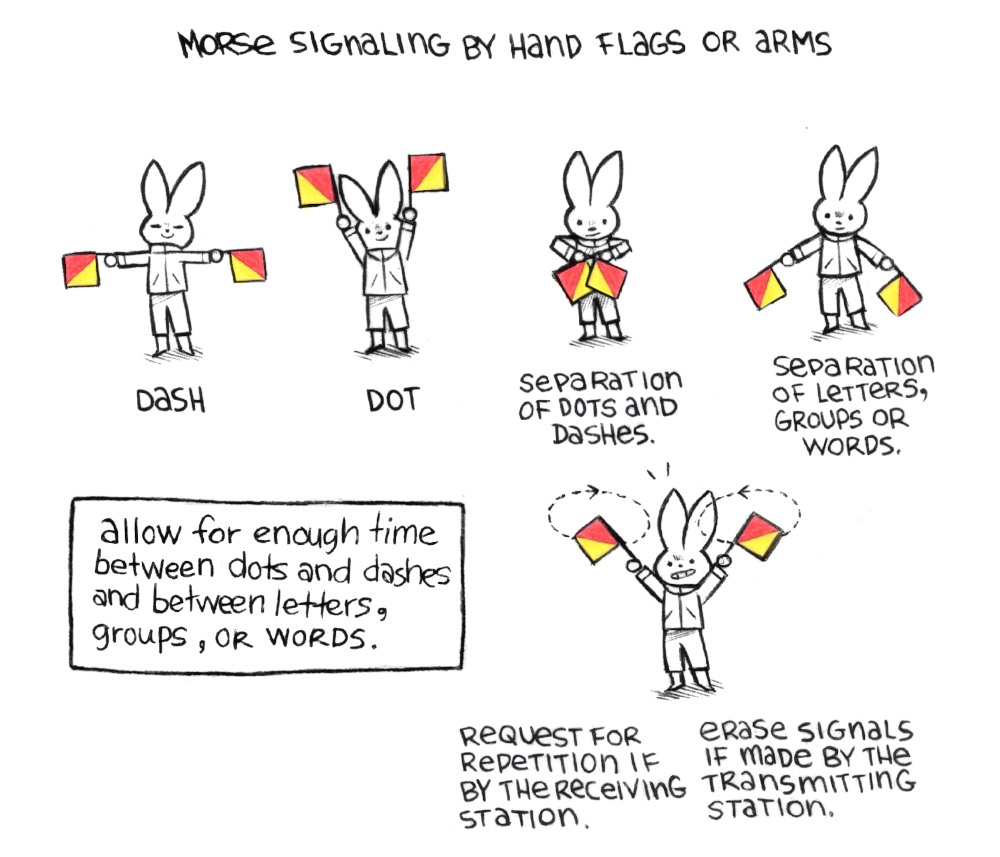 MORSE SIGNALING BY HAND FLAGS OR ARMS
DASH
DOT
SEPARATION
OF DOTS AND
DASHES.
SEPARATION
OF LETTERS,
GROUPS OR
WORDS.
allow for enough time
between dots and dashes
and between letters,
groups, OR WORDS.
REQUEST FOR
REPETITION IF
BY THE RECEIVING
STATION.
ERASE SIGNALS
IF MADE BY THE
TRANSMITTING
STATION.